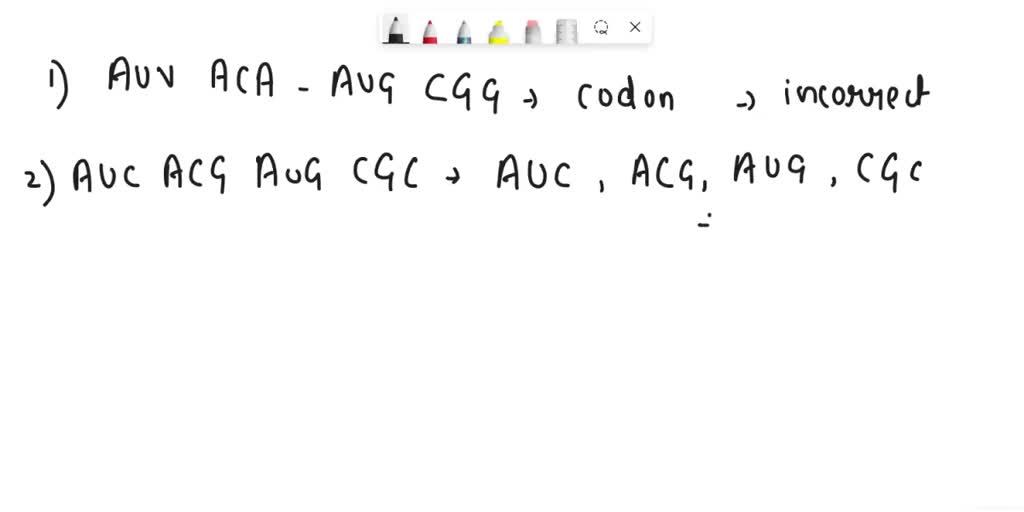 1) AUV ACA - AUG CGG → codon → incorrect
2) AUC ACG AUG CGC → AUC , ACG, AUG , CGC